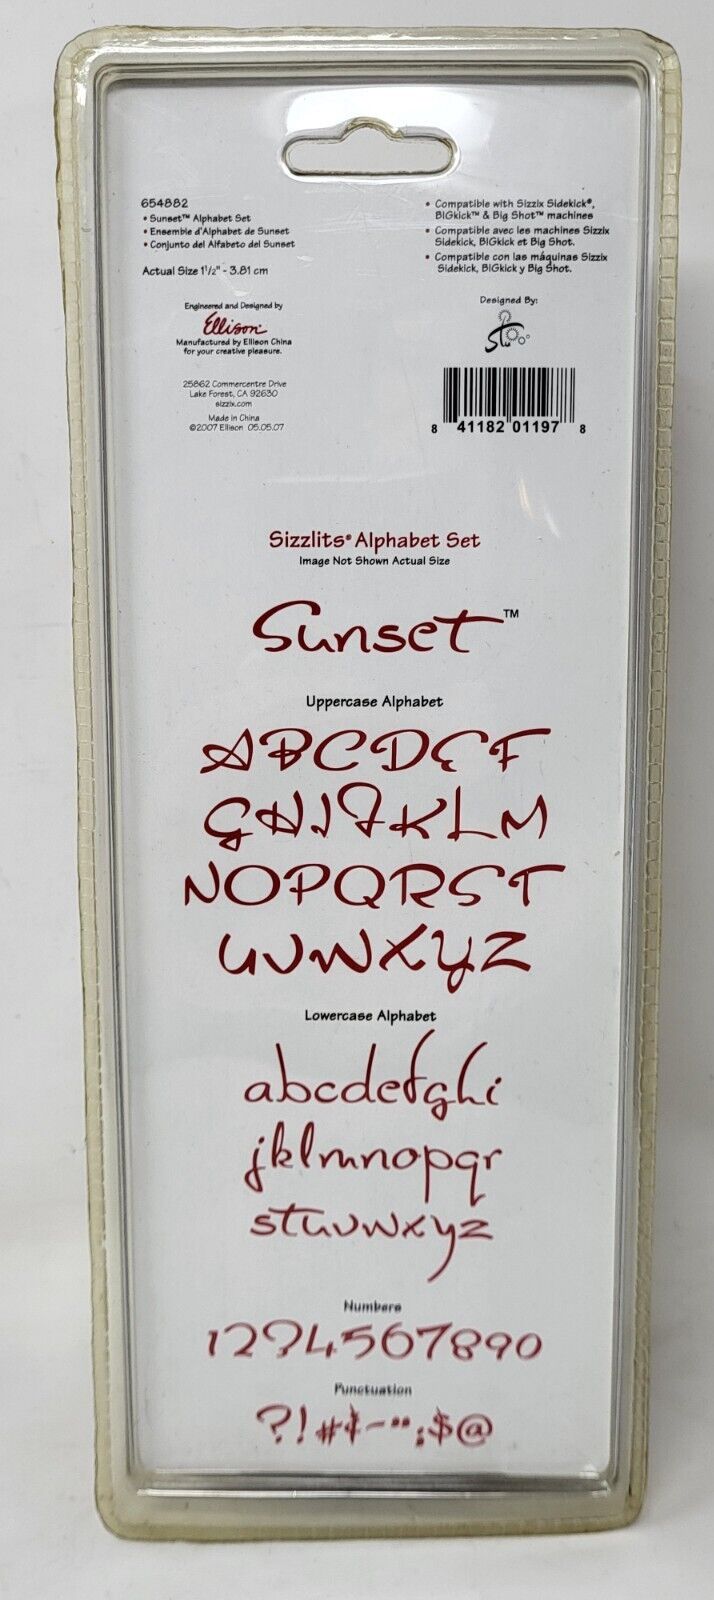 654882
• Sunset™ Alphabet Set
• Ensemble d'Alphabet de Sunset
• Conjunto del Alfabeto del Sunset
Actual Size 1 1/2" - 3.81 cm
Engineered and Designed by
Ellison
Manufactured by Ellison China
for your creative pleasure.
25862 Commercentre Drive
Lake Forest, CA 92630
sizzix.com
Made in China
©2007 Ellison 05.05.07
• Compatible with Sizzix Sidekick®,
BIGkick™ & Big Shot™ machines
• Compatible avec les machines Sizzix
Sidekick, BIGkick et Big Shot.
• Compatible con las máquinas Sizzix
Sidekick, BIGkick y Big Shot.
Designed By:
Stu
8 41182 01197 8
Sizzlits® Alphabet Set
Image Not Shown Actual Size
Sunset™
Uppercase Alphabet
ABCDEF
GHIJKLM
NOPQRST
UVWXYZ
Lowercase Alphabet
abcdefghi
jklmnopqr
stuvwxyz
Numbers
1234567890
Punctuation
?!#¢-"";$@